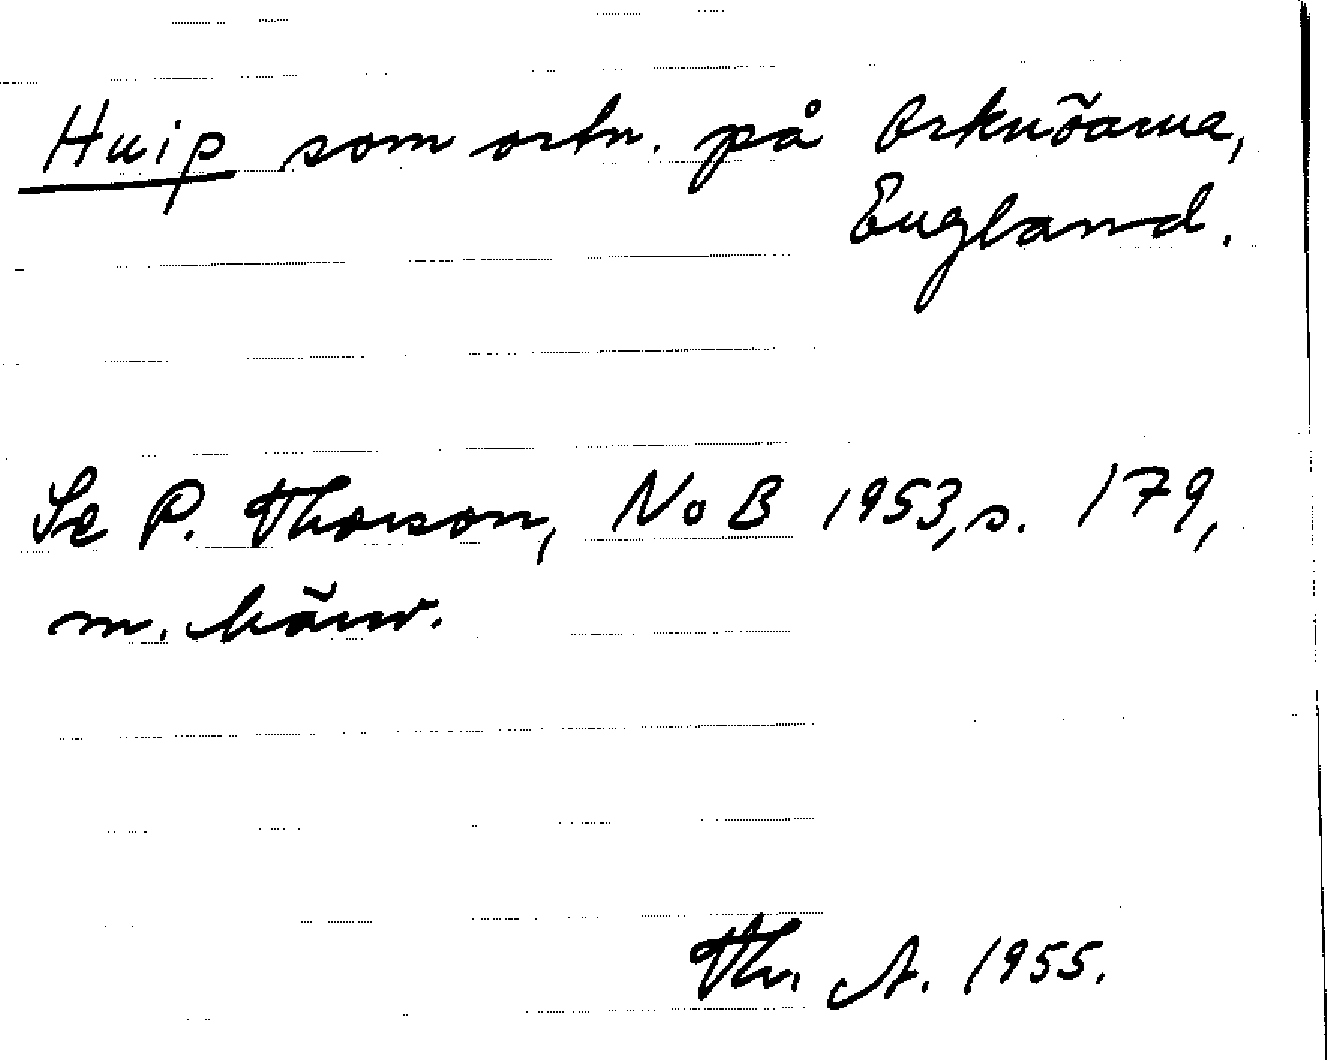 Huip som ortn. på Orknöarna,
England.
Se P. Thorson, NoB 1953, s. 179,
m. hänv.
Th. A. 1955.